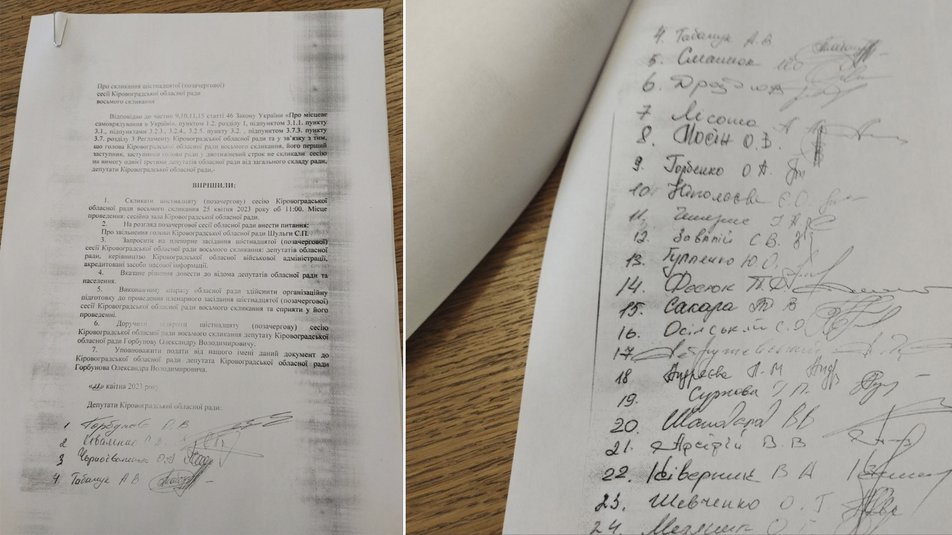 Про скликання шістнадцятої (позачергової)
сесії Кіровоградської обласної ради
восьмого скликання
Відповідно до частин 9,10,11,15 статті 46 Закону України «Про місцеве
самоврядування в Україні», пунктом 1.2. розділу 1, підпунктом 3.1.1. пункту
3.1., підпунктами 3.2.3., 3.2.4., 3.2.5. пункту 3.2. , підпунктом 3.7.3. пункту
3.7. розділу 3 Регламенту Кіровоградської обласної ради та у зв'язку з тим,
що голова Кіровоградської обласної ради восьмого скликання, його перший
заступник, заступник голови ради у двотижневий строк не скликали сесію
на вимогу однієї третини депутатів обласної ради від загального складу ради,
депутати Кіровоградської обласної ради,-
ВИРІШИЛИ:
1. Скликати шістнадцяту (позачергову) сесію Кіровоградської
обласної ради восьмого скликання 25 квітня 2023 року об 11:00. Місце
проведення: сесійна зала Кіровоградської обласної ради.
2. На розгляд позачергової сесії обласної ради внести питання:
Про звільнення голови Кіровоградської обласної ради Шульги С.П.
3. Запросити на пленарне засідання шістнадцятої (позачергової)
сесії Кіровоградської обласної ради восьмого скликання: депутатів обласної
ради, керівництво Кіровоградської обласної військової адміністрації,
акредитовані засоби масової інформації.
4. Вказане рішення довести до відома депутатів обласної ради та
населення.
5. Виконавчому апарату обласної ради здійснити організаційну
підготовку до проведення пленарного засідання шістнадцятої (позачергової)
сесії Кіровоградської обласної ради восьмого скликання та сприяти у його
проведенні.
6. Доручити відкрити шістнадцяту (позачергову) сесію
Кіровоградської обласної ради восьмого скликання депутату Кіровоградської
обласної ради Горбунову Олександру Володимировичу.
7. Уповноважити подати від нашого імені даний документ до
Кіровоградської обласної ради депутата Кіровоградської обласної ради
Горбунова Олександра Володимировича.
квітня 2023 року
Депутати Кіровоградської обласної ради:
1 Горбунов О.В
2
3 О.А
4 Табачук А.В
4. Табачук А В
5.
6.
7
8. Мосін О.В.
9. Горбенко О А.
10. Ніколаєва
11.
12. Завалій С В.
13. Ю.О.
14.
15. Сакара Т В
16. Осінський С.О
17
18 Андрєєва Л М
19. Суркова
20. В.В
21. В. В
22. Ківерник В А
23. Шевченко О.
24.